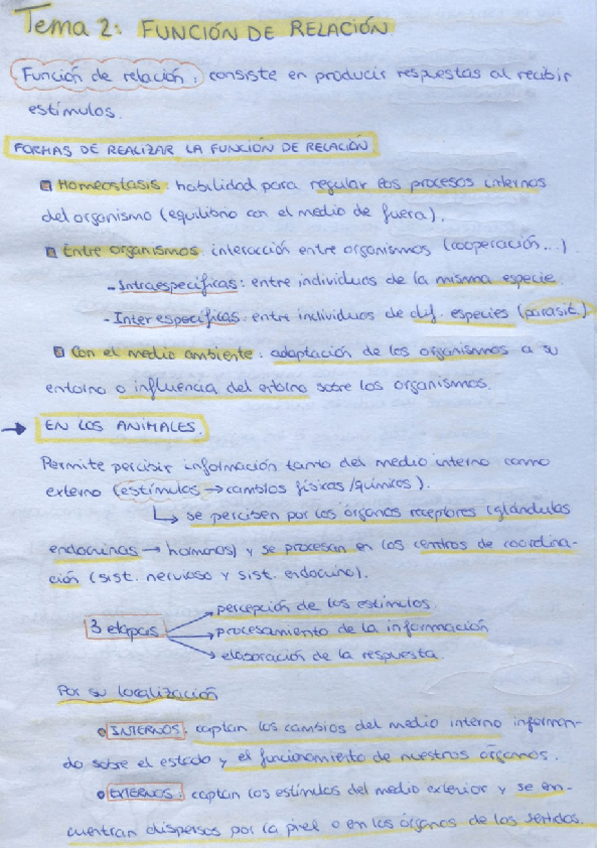 Tema 2: FUNCIÓN DE RELACIÓN.
Función de relación: consiste en producir respuestas al recibir
estímulos.
FORMAS DE REALIZAR LA FUNCIÓN DE RELACIÓN
Homeostasis: habilidad para regular los procesos internos
del organismo (equilibrio con el medio de fuera).
Entre organismos: interacción entre organismos (cooperación...)
- Intraespecíficas: entre individuos de la misma especie.
- Interespecíficas: entre individuos de dif. especies (parasit.)
Con el medio ambiente: adaptación de los organismos a su
entorno o influencia del entorno sobre los organismos.
→ EN LOS ANIMALES.
Permite percibir información tanto del medio interno como
externo (estímulos → cambios físicos/químicos).
↳ se perciben por los órganos receptores (glándulas
endocrinas → hormonas) y se procesan en los centros de coordina-
ción (sist. nervioso y sist. endocrino).
3 etapas
percepción de los estímulos.
procesamiento de la información
elaboración de la respuesta.
Por su localización
INTERNOS: captan los cambios del medio interno informan-
do sobre el estado y el funcionamiento de nuestros órganos.
EXTERNOS: captan los estímulos del medio exterior y se en-
cuentran dispersos por la piel o en los órganos de los sentidos.